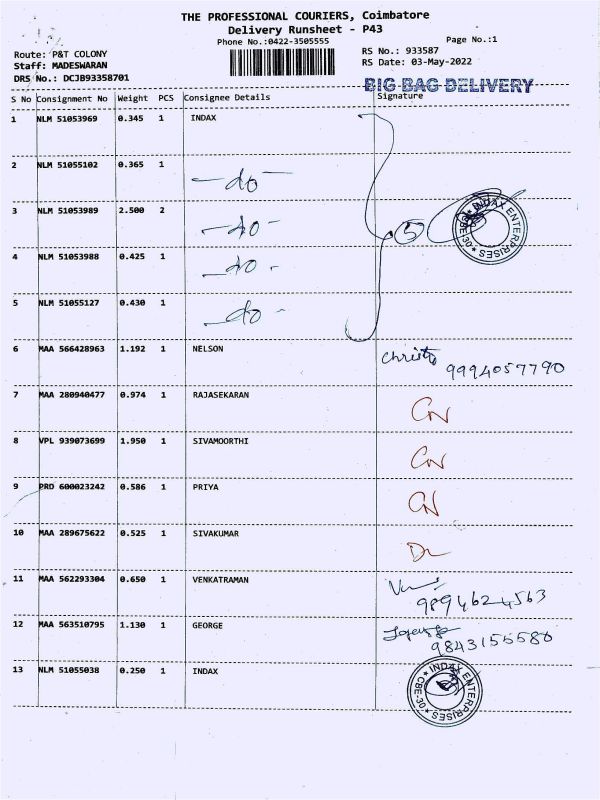 THE PROFESSIONAL COURIERS, Coimbatore
Delivery Runsheet - P43
Phone No.:0422-3505555
Page No.:1
Route: P&T COLONY
RS No.: 933587
Staff: MADESWARAN
RS Date: 03-May-2022
DRS No.: DCJB93358701
BIG BAG DELIVERY
S No Consignment No Weight PCS Consignee Details Signature
1 NLM 51053969 0.345 1 INDAX
2 NLM 51055102 0.365 1 -do-
3 NLM 51053989 2.500 2 -do-
5
INDAX ENTERPRISES
CBE-30
4 NLM 51053988 0.425 1 -do-
5 NLM 51055127 0.430 1 -do-
6 MAA 566428963 1.192 1 NELSON
9994057790
7 MAA 280940477 0.974 1 RAJASEKARAN CN
8 VPL 939073699 1.950 1 SIVAMOORTHI CN
9 PRD 600023242 0.586 1 PRIYA CN
10 MAA 289675622 0.525 1 SIVAKUMAR
11 MAA 562293304 0.650 1 VENKATRAMAN
9894624563
12 MAA 563510795 1.130 1 GEORGE
9843155580
13 NLM 51055038 0.250 1 INDAX
INDAX ENTERPRISES
CBE-30